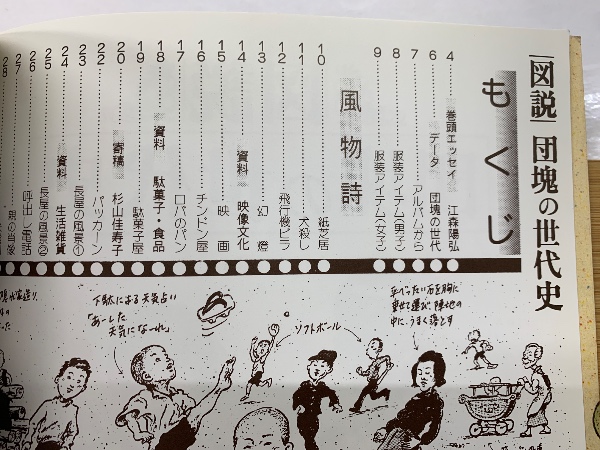 図説 団塊の世代史
もくじ
4 巻頭エッセイ 江森陽弘
6 データ 団塊の世代
7 アルバムから
8 服装アイテム(男子)
9 服装アイテム(女子)
風物詩
10 紙芝居
11 犬殺し
12 飛行機ビラ
13 幻燈
14 資料 映像文化
15 映画
16 チンドン屋
17 ロバのパン
18 資料 駄菓子・食品
19 駄菓子屋
20 寄稿 杉山佳寿子
22 バッカーン
23 長屋の風景①
24 資料 生活雑貨
25 長屋の風景②
26 呼出し電話
27 親の肖像
28
平べったい石を胸に
乗せて運び、陣地の
中に、うまく落とす
ソフトボール
下駄による天気占い
「あーした
天気になーれ」